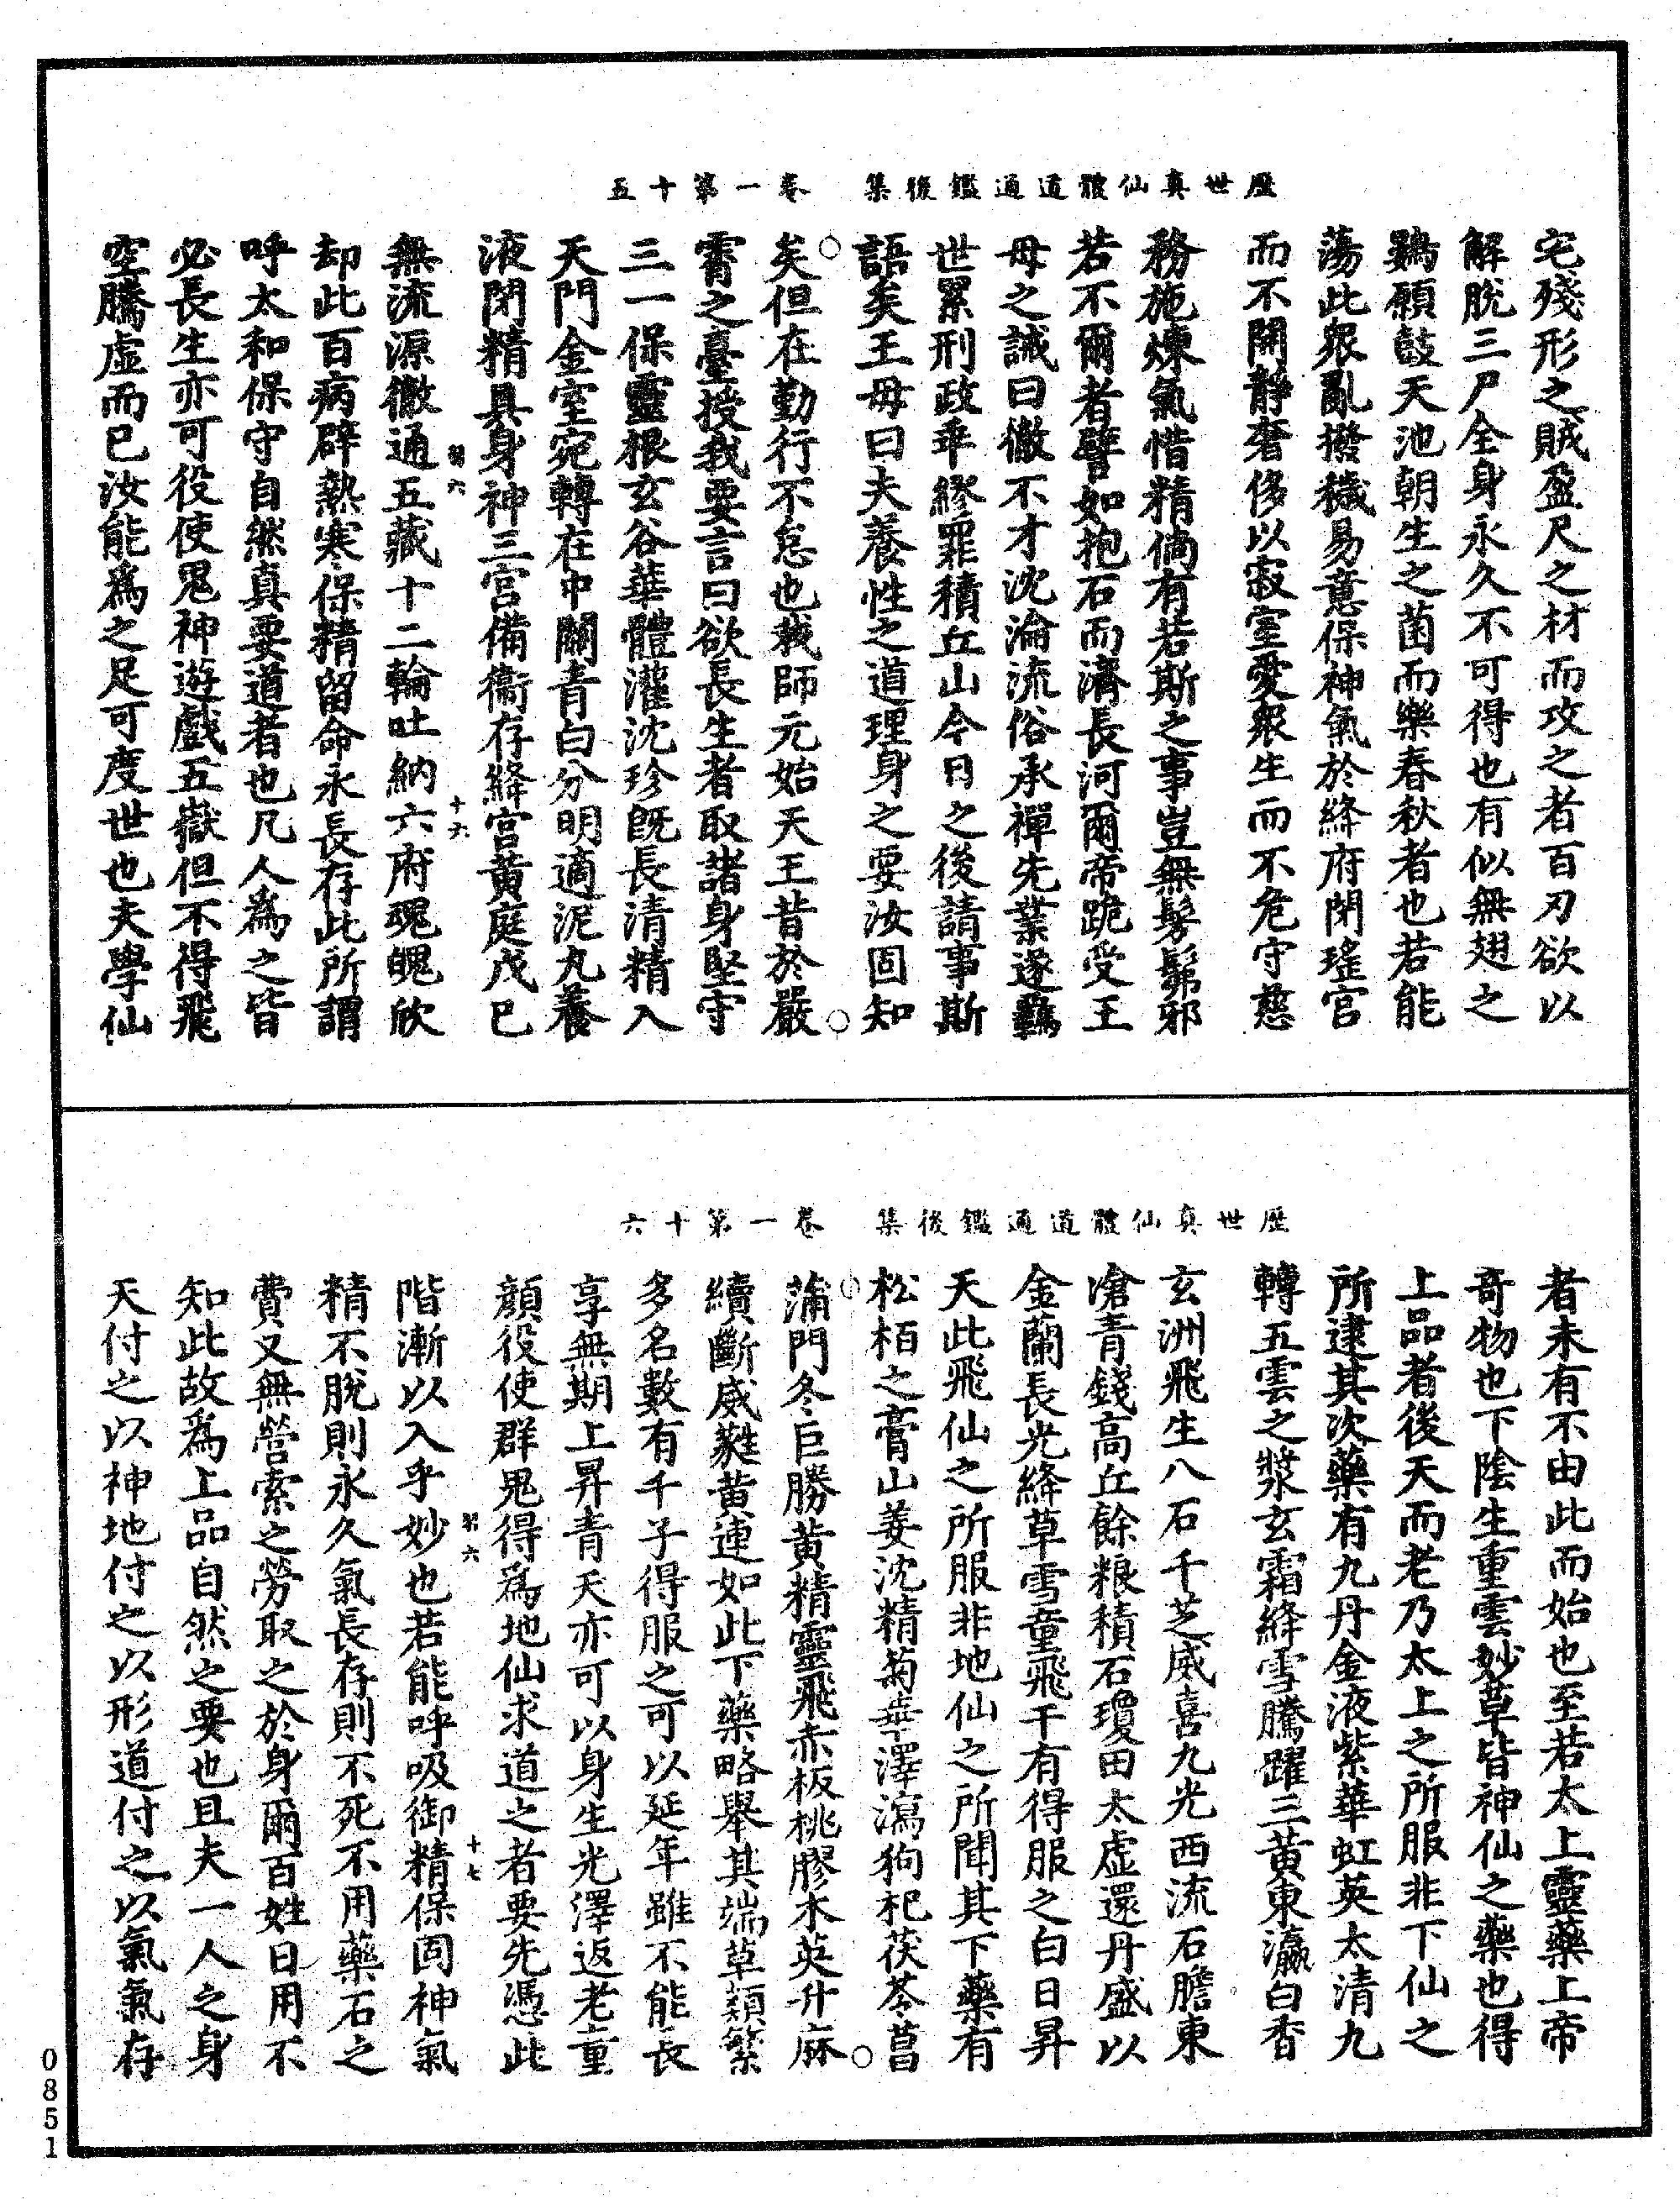 歷世真仙體道通鑑後集　卷一第十五
宅殘形之賊盈尺之材而攻之者百刃欲以
解脫三尸全身永久不可得也有似無翅之
鷃願鼓天池朝生之菌而樂春秋者也若能
蕩此衆亂撥穢易意保神氣於絳府閉瑤宮
而不開靜奢侈以寂室愛衆生而不危守慈
務施煉氣惜精倘有若斯之事豈無髣髴邪
若不爾者譬如抱石而濟長河爾帝跪受王
母之誡曰徹不才沈淪流俗承禪先業遂羈
世累刑政乖繆罪積丘山今日之後請事斯
語矣王母曰夫養性之道理身之要汝固知
矣但在勤行不怠也我師元始天王昔於嚴
霄之臺授我要言曰欲長生者取諸身堅守
三一保靈根玄谷華體灌沈珍旣長清精入
天門金室宛轉在中關青白分明適泥丸養
液閉精具身神三宮備衛存絳宮黃庭戊己
無流源徹通五藏十二輪吐納六府魂魄欣
却此百病辟熱寒保精留命永長存此所謂
呼太和保守自然真要道者也凡人爲之皆
必長生亦可役使鬼神遊戲五嶽但不得飛
空騰虛而已汝能爲之足可度世也夫學仙
歷世真仙體道通鑑後集　卷一第十六
者未有不由此而始也至若太上靈藥上帝
奇物也下陰生重雲妙草皆神仙之藥也得
上品者後天而老乃太上之所服非下仙之
所逮其次藥有九丹金液紫華虹英太清九
轉五雲之漿玄霜絳雪騰躍三黃東瀛白香
玄洲飛生八石千芝威喜九光西流石膽東
滄青錢高丘餘粮積石瓊田太虛還丹盛以
金蘭長光絳草雪童飛干有得服之白日昇
天此飛仙之所服非地仙之所聞其下藥有
松栢之膏山姜沈精菊華澤瀉狗杞茯苓菖
蒲門冬巨勝黃精靈飛赤板桃膠木英升麻
續斷威蕤黃連如此下藥略舉其端草類繁
多名數有千子得服之可以延年雖不能長
享無期上昇青天亦可以身生光澤返老童
顏役使群鬼得爲地仙求道之者要先憑此
階漸以入乎妙也若能呼吸御精保固神氣
精不脫則永久氣長存則不死不用藥石之
費又無營索之勞取之於身爾百姓日用不
知此故爲上品自然之要也且夫一人之身
天付之以神地付之以形道付之以氣氣存
十六
十七
0851